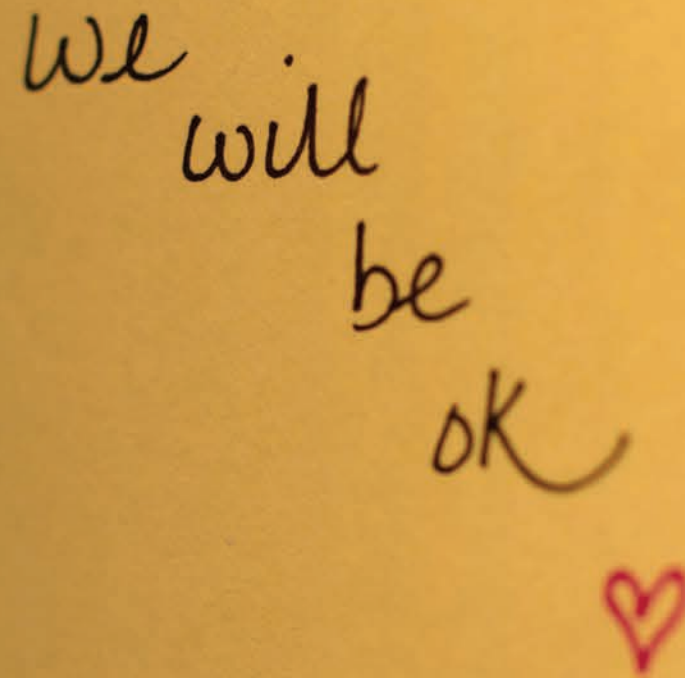 We
will
be
ok